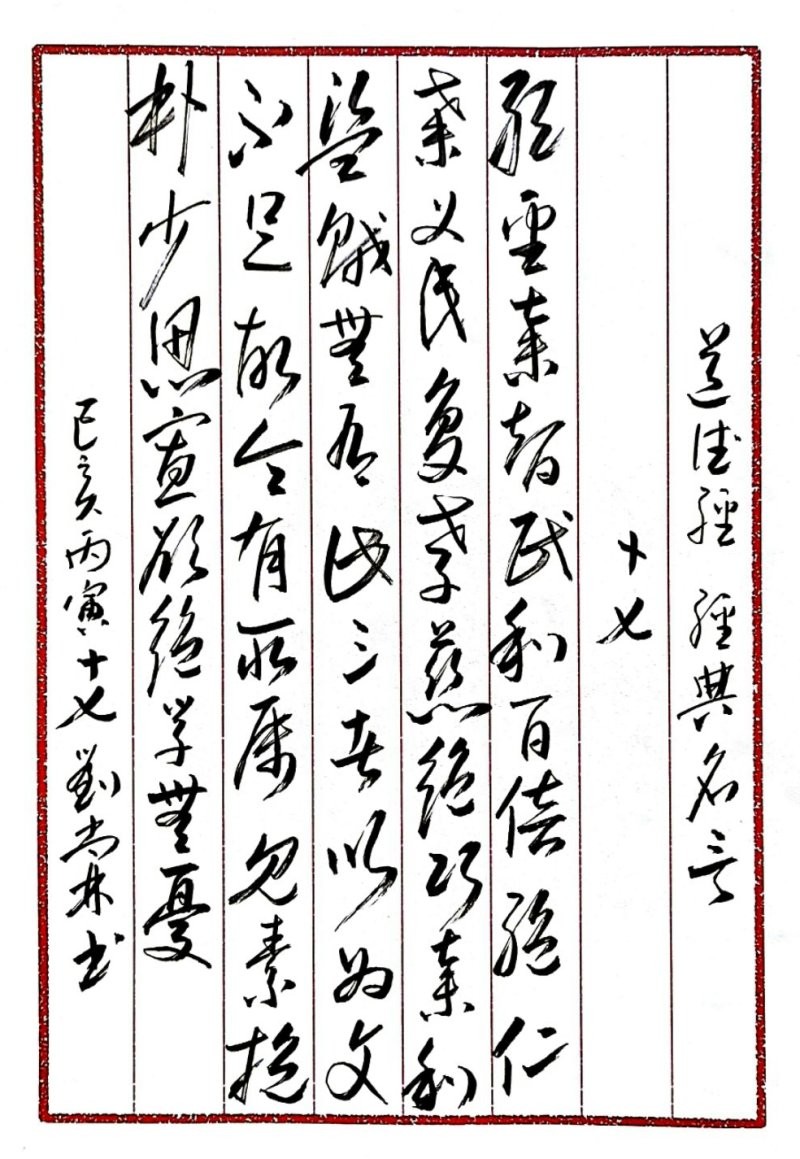 道德經 經典名言
十七
絕聖棄智民利百倍絕仁
棄义民复孝慈絕巧棄利
盜賊無有此三者以为文
不足故令有所属見素抱
朴少思寡欲絕学無憂
己亥丙寅十七劉尚林书